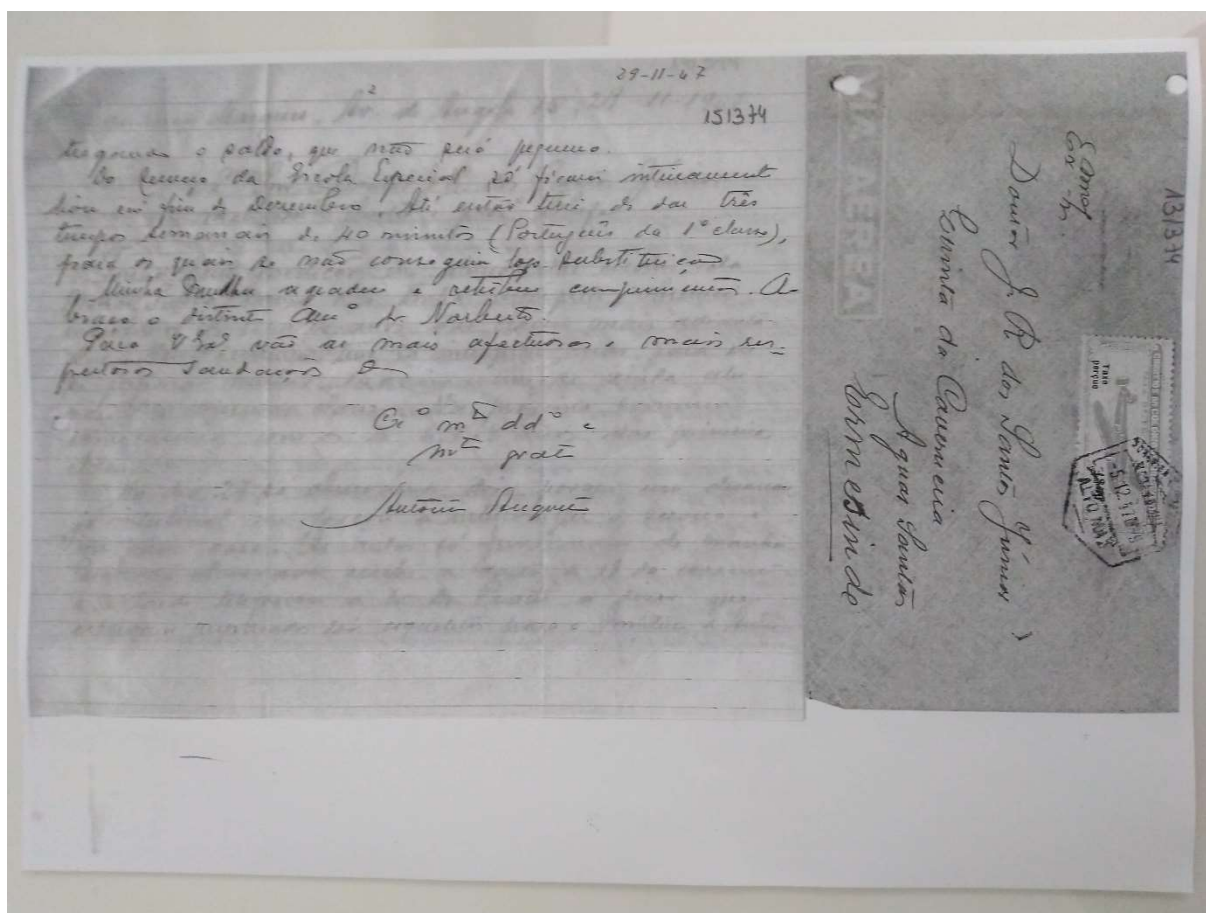 29-11-47
2
151374
o saldo, que não será pequeno.
Do serviço da Escola Especial só ficarei inteiramente
livre em fim de Dezembro. Até então terei de dar três
tempos semanais de 40 minutos (Português da 1ª classe),
para os quais se não conseguiu logo substituição.
Minha mulher agradece e retribue cumprimentos. A-
braço o distinto Amº Dr. Norberto.
Para V. Exª vão as mais afectuosas e mais res-
peitosas saudações do
Crº mtº ddº e
mtº grato
António Augusto
VIA AEREA
131374
Exmº
Sr.
Doutor J. R. dos Santos Júnior
Quinta da Caverneira
Aguas Santas
Ermesinde
Taxe
perçue
5.12.47